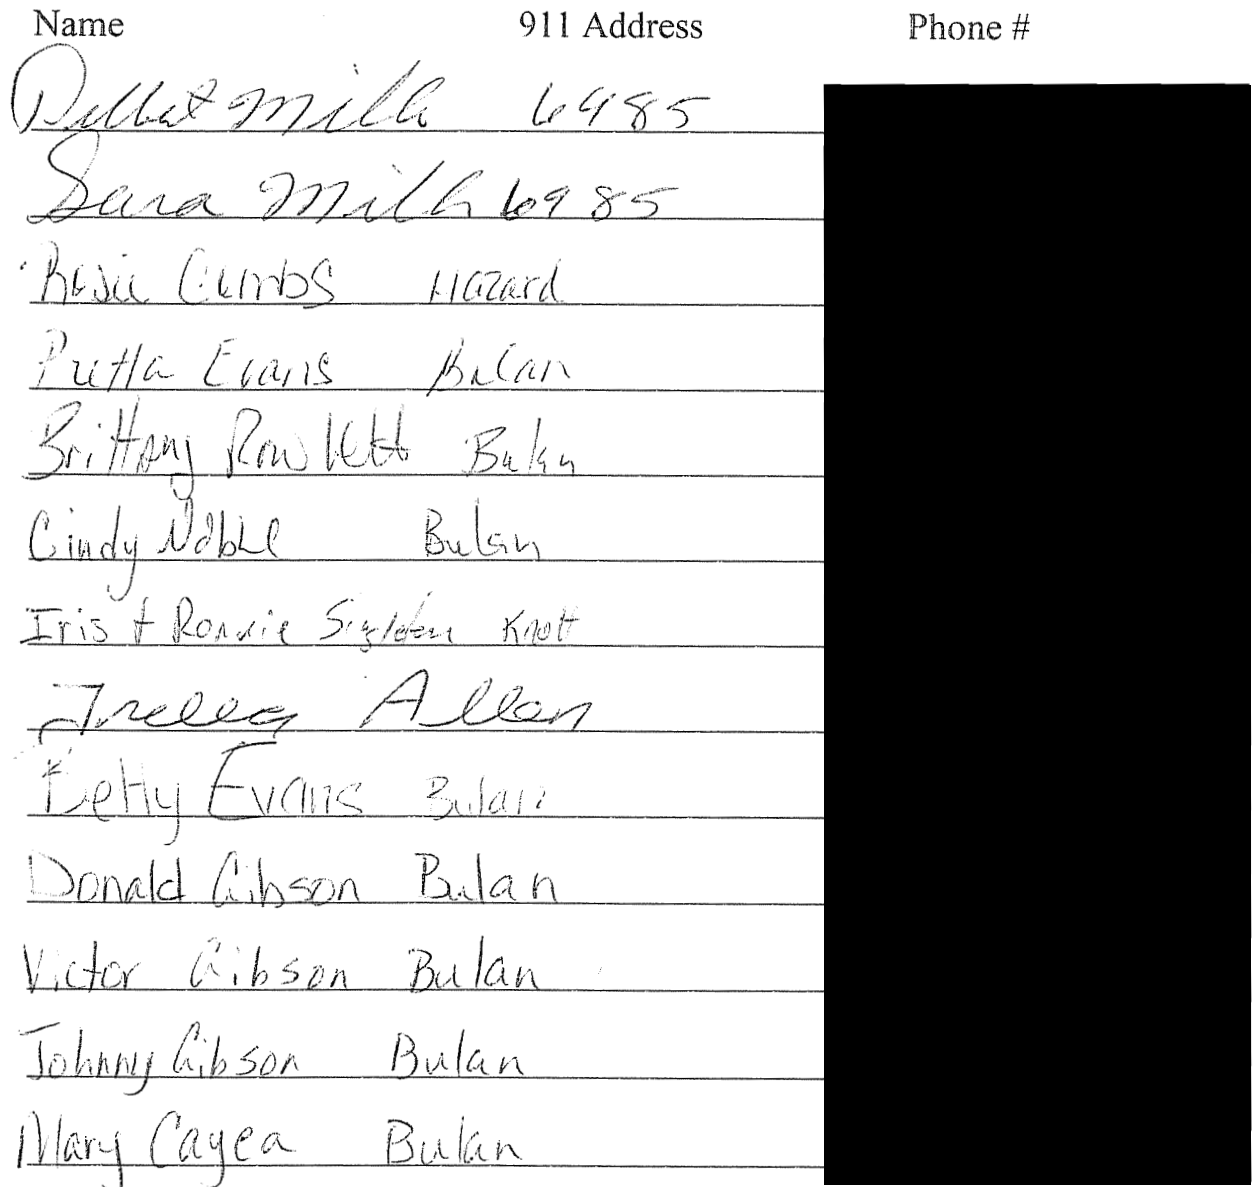 Name 911 Address Phone #
6985
Sara 6985
Rosie Combs Hazard
Evans Bulan
Brittany Rowlett Bulan
Cindy Noble Bulan
Iris + Ronnie Singleton Knott
Allen
Betty Evans Bulan
Donald Gibson Bulan
Victor Gibson Bulan
Johnny Gibson Bulan
Mary Cayea Bulan